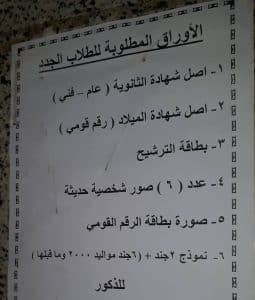 الأوراق المطلوبة للطلاب الجدد
١- اصل شهادة الثانوية ( عام – فني )
٢- اصل شهادة الميلاد ( رقم قومي )
٣- بطاقة الترشيح
٤- عدد ( ٦ ) صور شخصية حديثة
٥- صورة بطاقة الرقم القومي
٦- نموذج ٢جند + (٦جند مواليد ٢٠٠٠ وما قبلها )
للذكور